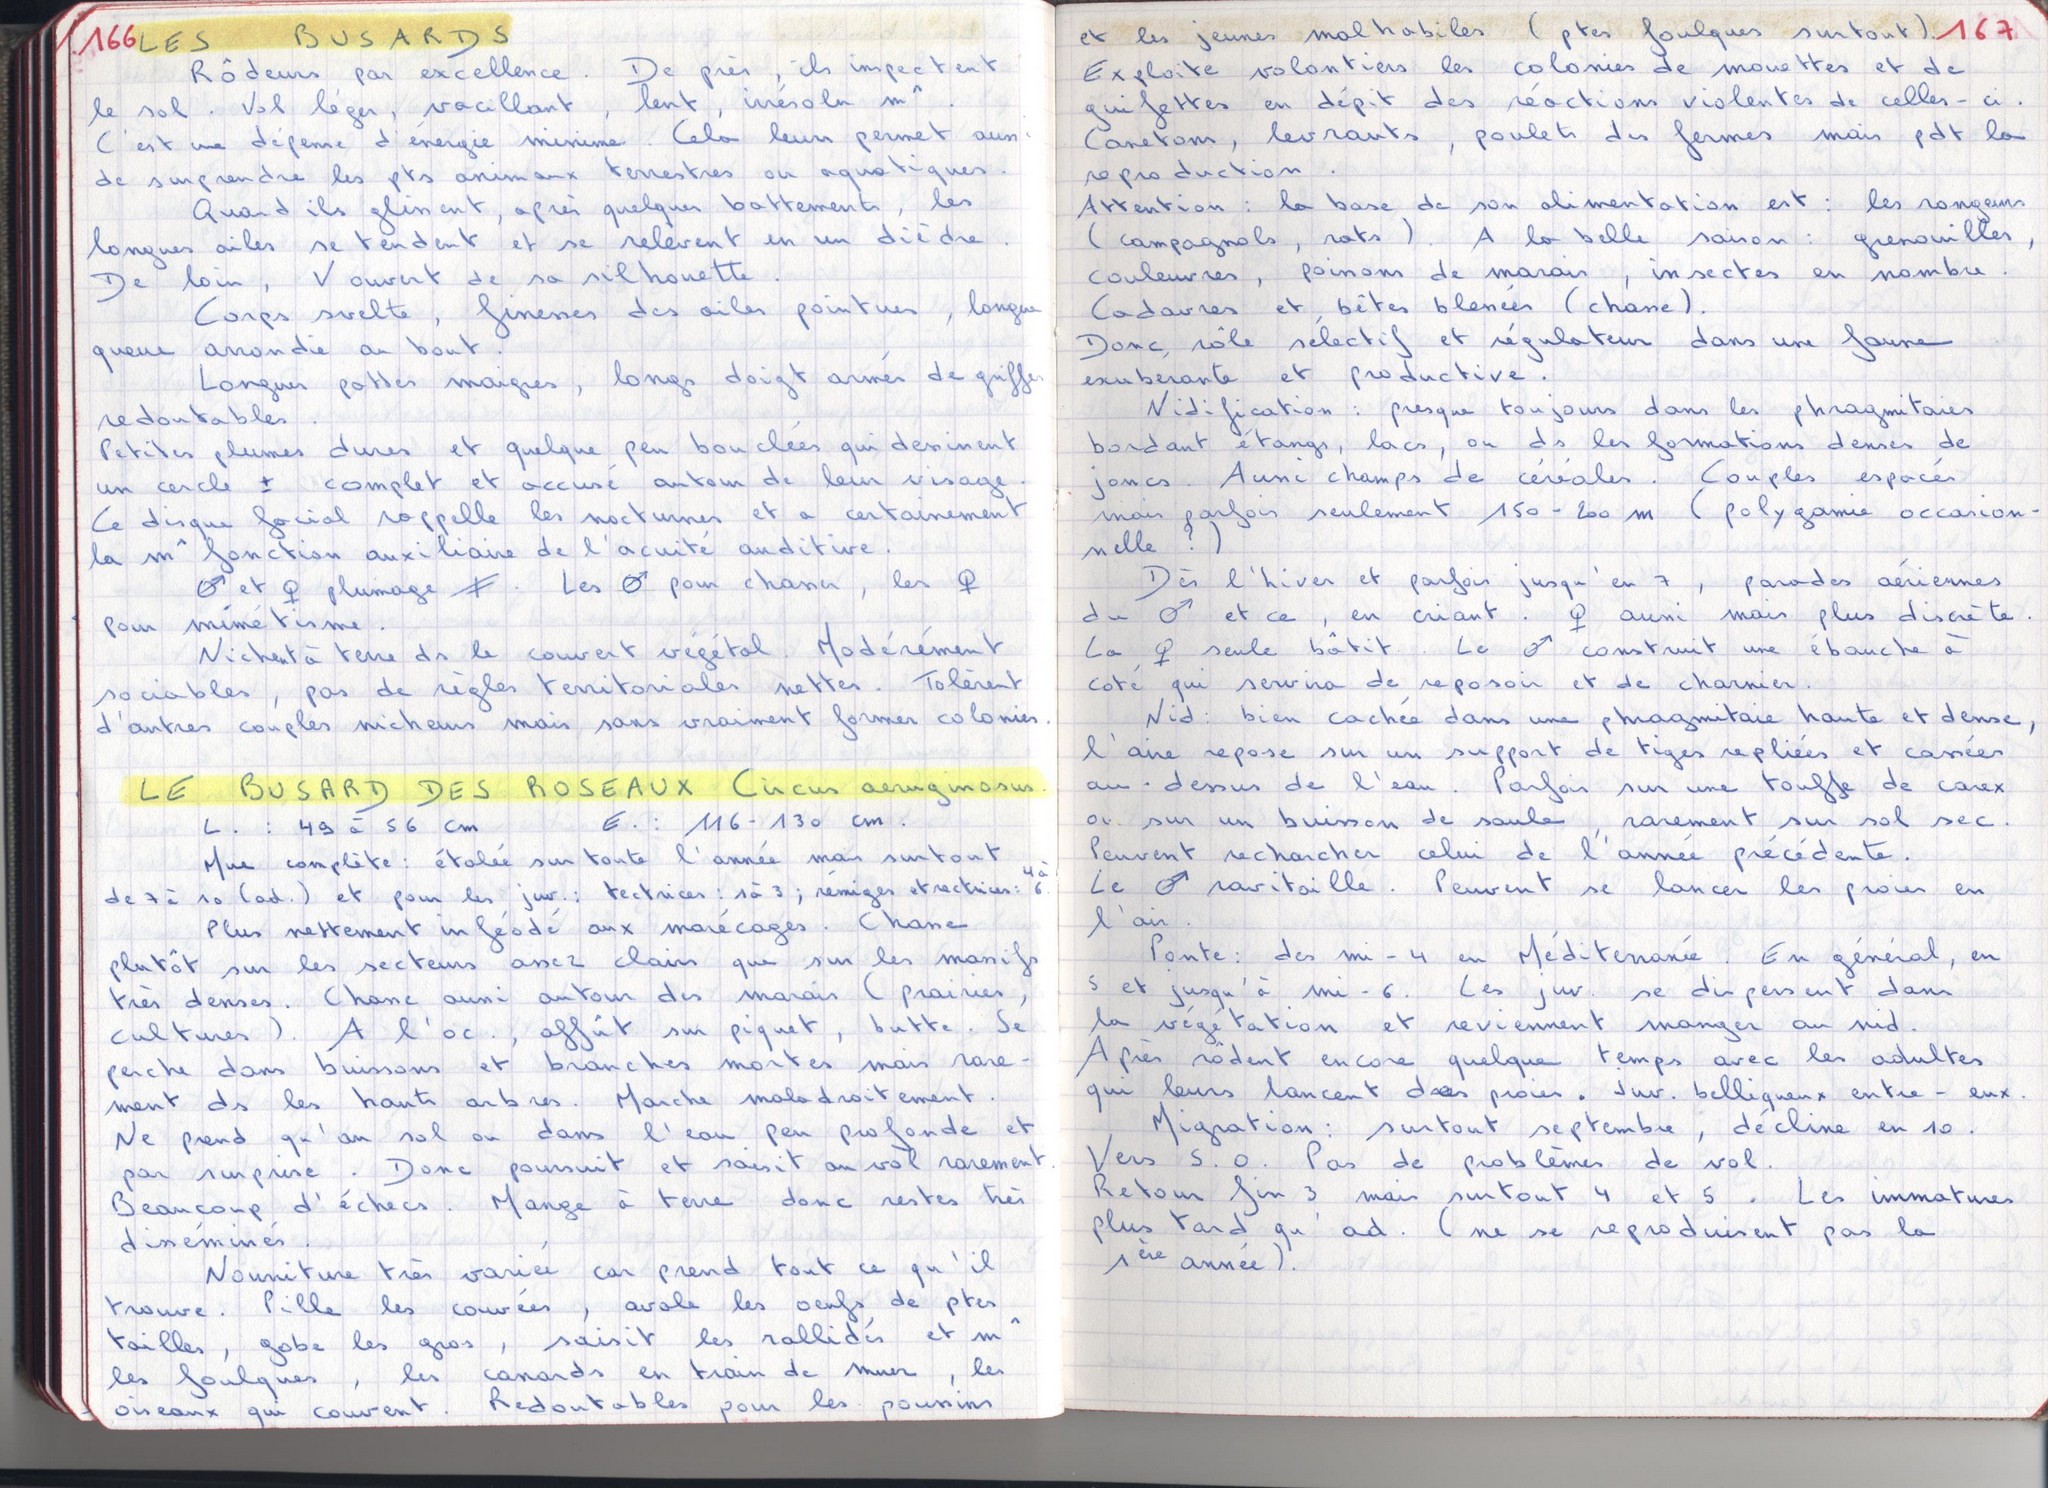 166 LES BUSARDS
Rôdeurs par excellence. De près, ils inspectent
le sol. Vol léger, vacillant, lent, irrésolu m^.
C'est une dépense d'énergie minime. Cela leur permet aussi
de surprendre les pts animaux terrestres ou aquatiques.
Quand ils glissent, après quelques battements, les
longues ailes se tendent et se relèvent en un dièdre.
De loin, V ouvert de sa silhouette.
Corps svelte, finesses des ailes pointues, longue
queue arrondie au bout.
Longues pattes maigres, longs doigt armés de griffes
redoutables.
Petites plumes dures et quelque peu bouclées qui dessinent
un cercle ± complet et accusé autour de leur visage.
Ce disque facial rappelle les nocturnes et a certainement
la m^ fonction auxiliaire de l'acuité auditive.
♂ et ♀ plumage ≠. Les ♂ pour chasser, les ♀
pour mimétisme.
Nichent à terre ds le couvert végétal. Modérément
sociables, pas de règles territoriales nettes. Tolèrent
d'autres couples nicheurs mais sans vraiment former colonies.
LE BUSARD DES ROSEAUX Circus aeruginosus.
L. : 49 à 56 cm E. : 116-130 cm.
Mue complète : étalée sur toute l'année mais surtout
de 7 à 10 (ad.) et pour les juv. : tectrices : 1 à 3 ; rémiges et rectrices : 4 à 6.
Plus nettement inféodé aux marécages. Chasse
plutôt sur les secteurs assez clairs que sur les massifs
très denses. Chasse aussi autour des marais (prairies,
cultures). A l'oc., affût sur piquet, butte. Se
perche dans buissons et branches mortes mais rare-
ment ds les hauts arbres. Marche maladroitement.
Ne prend qu'au sol ou dans l'eau peu profonde et
par surprise. Donc poursuit et saisit au vol rarement.
Beaucoup d'échecs. Mange à terre donc restes très
disséminés.
Nourriture très variée car prend tout ce qu'il
trouve. Pille les couvées, avale les oeufs de ptes
tailles, gobe les gros, saisit les rallidés et m^
les foulques, les canards en train de muer, les
oiseaux qui couvent. Redoutables pour les poussins
167
et les jeunes malhabiles (ptes foulques surtout).
Exploite volontiers les colonies de mouettes et de
guifettes en dépit des réactions violentes de celles-ci.
Canetons, levrauts, poulets des fermes mais pdt la
reproduction.
Attention : la base de son alimentation est : les rongeurs
(campagnols, rats). A la belle saison : grenouilles,
couleuvres, poissons de marais, insectes en nombre.
Cadavres et bêtes blessées (chasse).
Donc, rôle sélectif et régulateur dans une faune
exuberante et productive.
Nidification : presque toujours dans les phragmitaies
bordant étangs, lacs, ou ds les formations denses de
joncs. Aussi champs de céréales. Couples espacés
mais parfois seulement 150-200 m (polygamie occasion-
nelle ?)
Dès l'hiver et parfois jusqu'en 7, parades aériennes
du ♂ et ce, en criant. ♀ aussi mais plus discrète.
La ♀ seule bâtit. Le ♂ construit une ébauche à
coté qui servira de reposoir et de charnier.
Nid : bien cachée dans une phragmitaie haute et dense,
l'aire repose sur un support de tiges repliées et cassées
au-dessus de l'eau. Parfois sur une touffe de carex
ou sur un buisson de saule, rarement sur sol sec.
Peuvent rechercher celui de l'année précédente.
Le ♂ ravitaille. Peuvent se lancer les proies en
l'air.
Ponte : des mi-4 en Méditerranée. En général, en
5 et jusqu'à mi-6. Les juv. se dispersent dans
la végétation et reviennent manger au nid.
Après rôdent encore quelque temps avec les adultes
qui leurs lancent des proies. Juv. belliqueux entre-eux.
Migration : surtout septembre, décline en 10.
Vers S.O. Pas de problèmes de vol.
Retour fin 3 mais surtout 4 et 5. Les immatures
plus tard qu'ad. (ne se reproduisent pas la
1ère année).